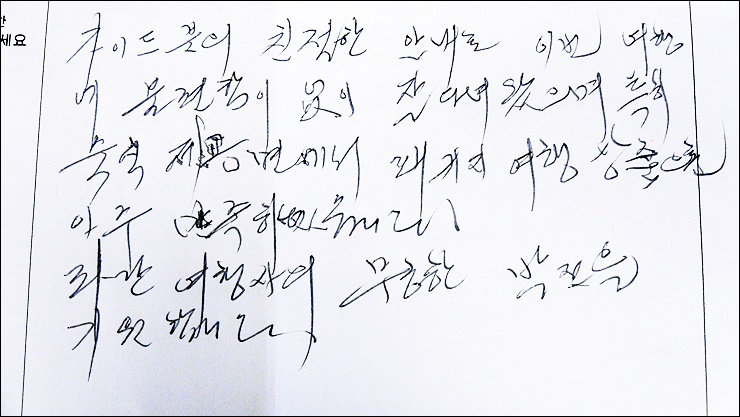 세요
가이드분의 친절한 안내로 이번 여행
에 불편함이 없이 잘 다녀왔으며 특히
숙식 제공면에서 패키지 여행 상품
아주 만족하였습니다
파란 여행사의 무궁한 발전을
기원합니다